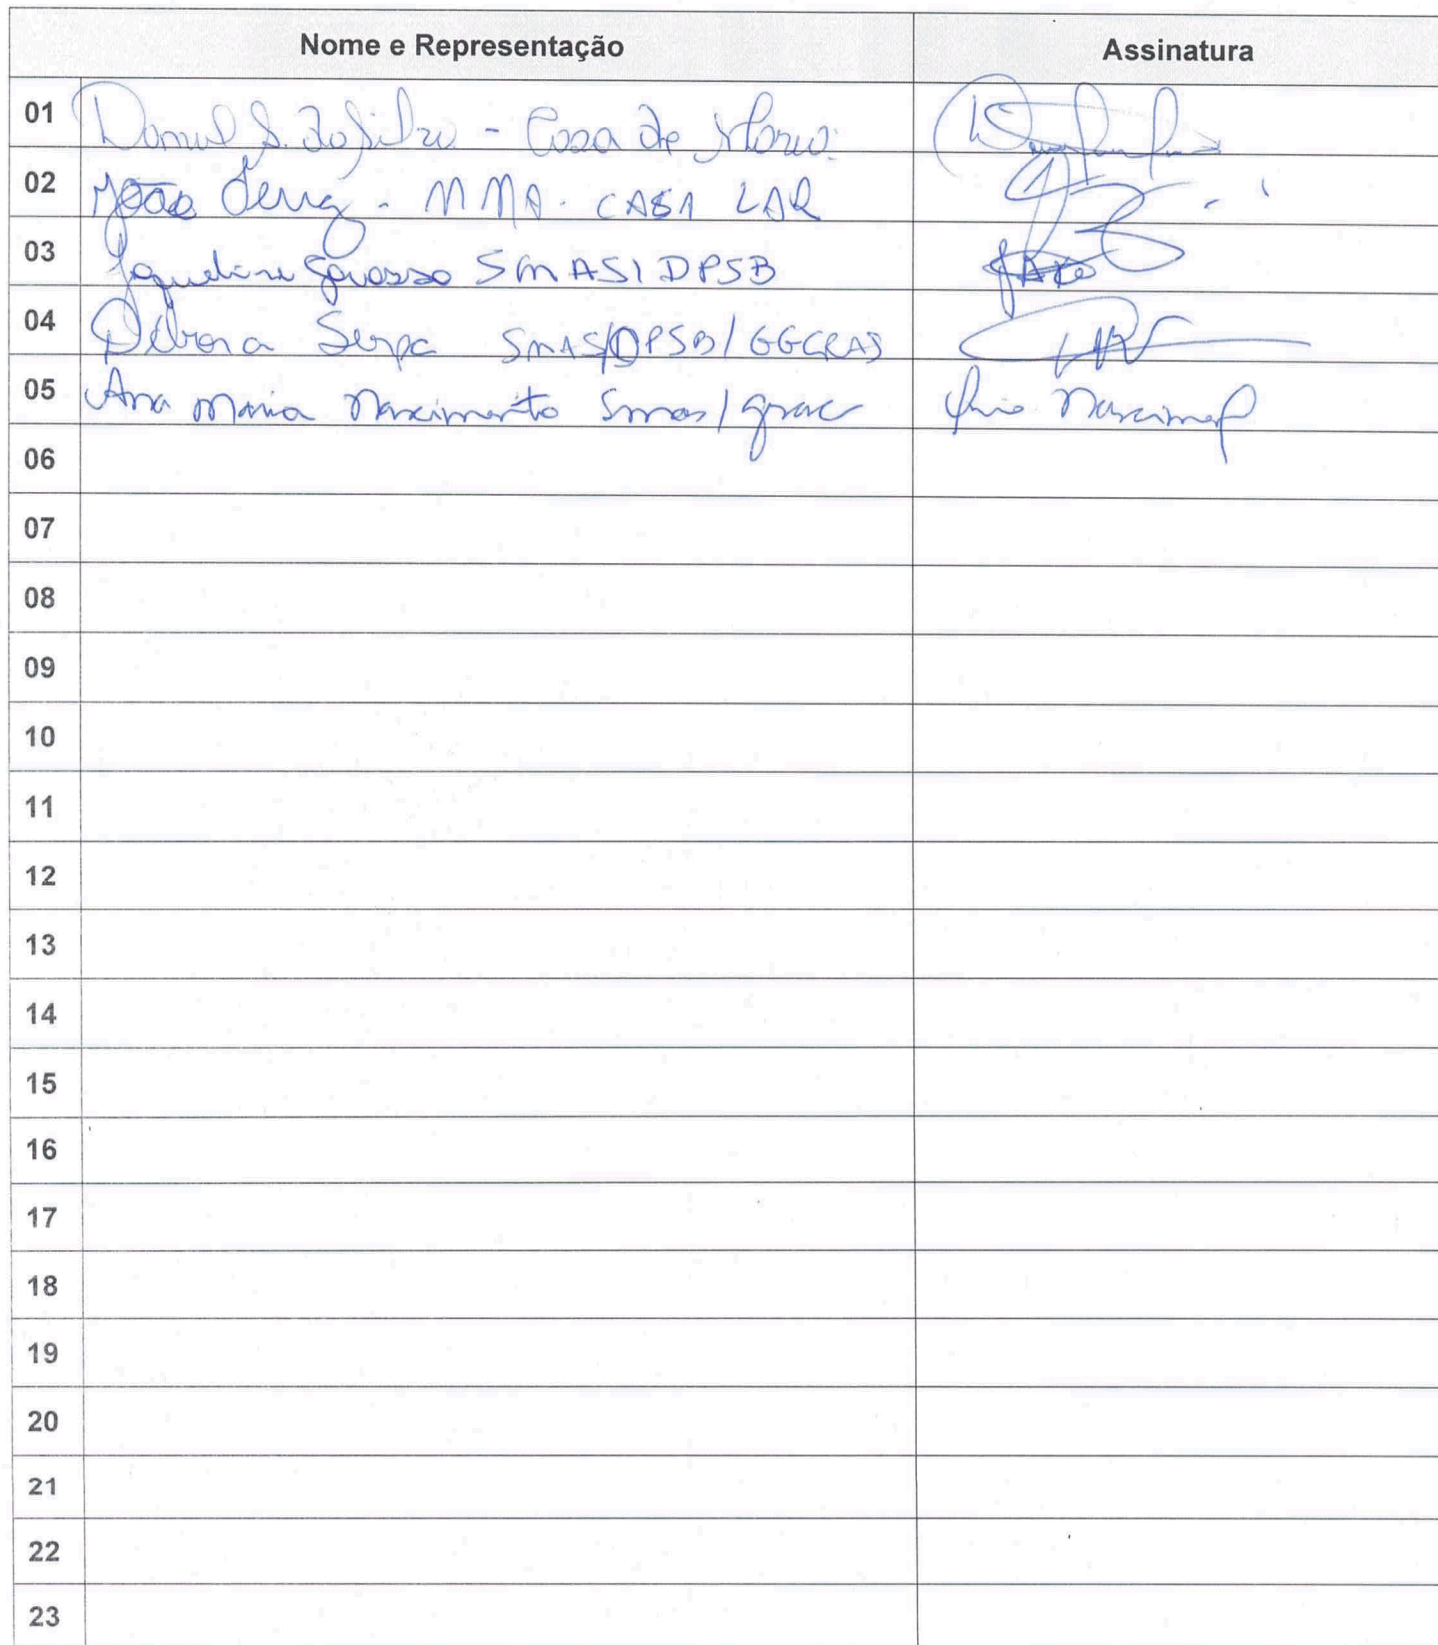 Nome e Representação Assinatura
01 Daniel S. da Silva - Casa de Maria.
02 João - MMA. CASA LAR
03 Jaqueline SMAS/DPSB
04 Débora Serpa SMAS/DPSB/GGCRAS
05 Ana Maria Nascimento Smas/ Ana Nascimento
06
07
08
09
10
11
12
13
14
15
16
17
18
19
20
21
22
23